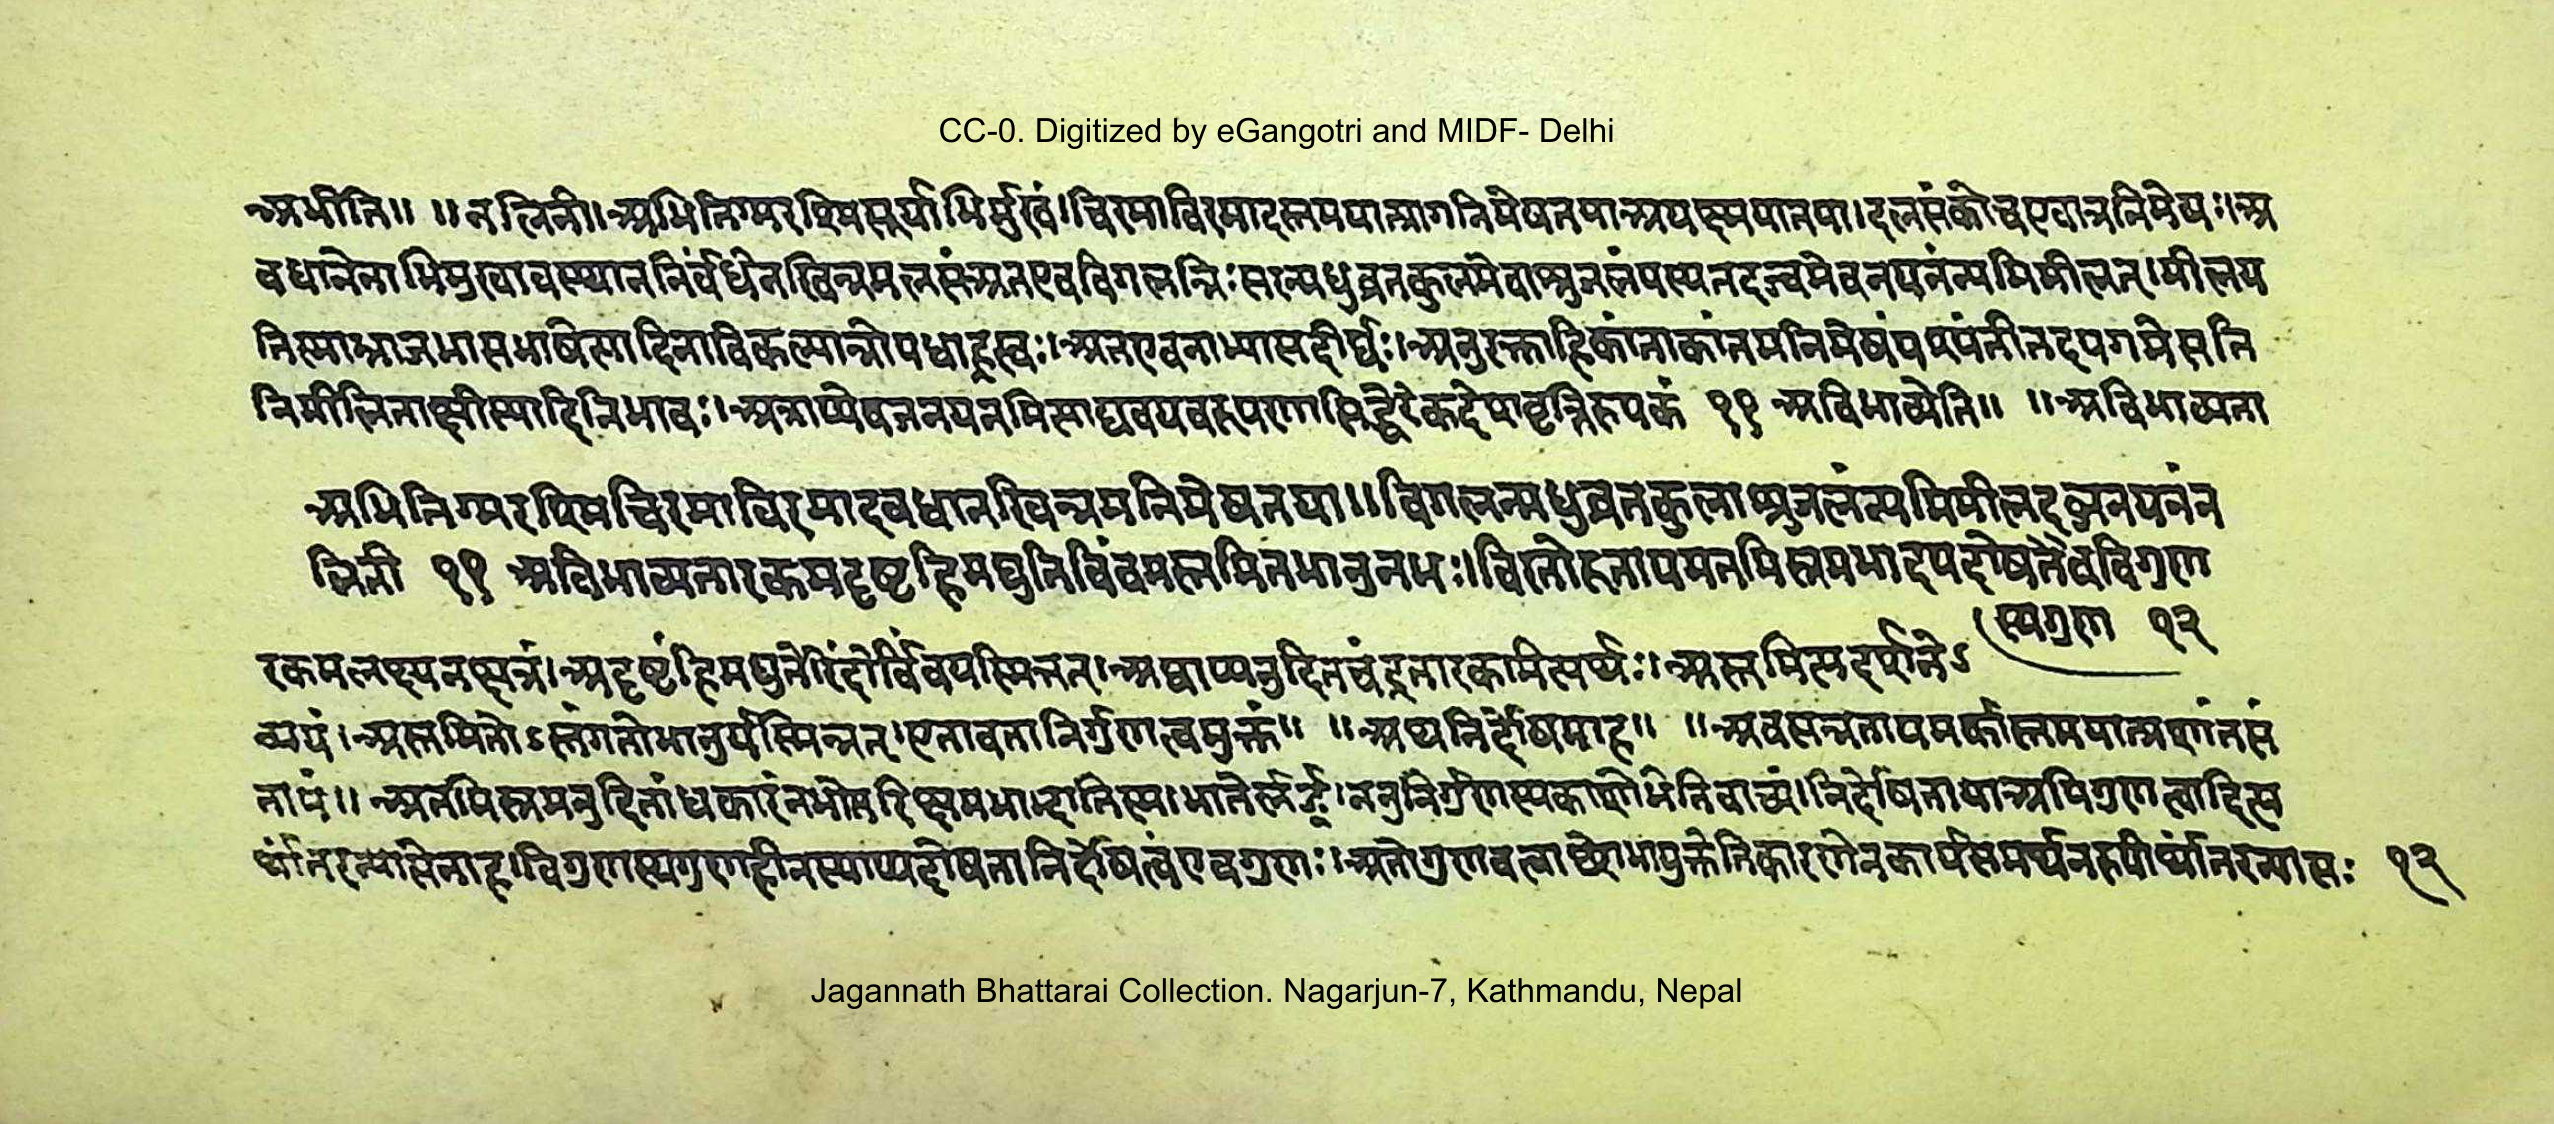 CC-0. Digitized by eGangotri and MIDF- Delhi
अभीति॥ ॥नलिनी॥अभितिग्मरश्मिसूर्याभिमुखं।चिरमाविरमादस्तमयात्प्रागनिमेषतया दलसंकोच एवात्रनिमेषः।अ
वधानेनाभिमुखावस्थाननिर्बंधेनखिन्नमलसंअतएवविगलन्निःसरन्मधुव्रतकुलमेवाश्रुजलंयस्यतदब्जमेवनयनंन्यमिमीलत्।मीलय
तिस्माभ्राजभासभाषेत्यादिनाविकल्पान्नोपधाह्रस्वः।अतएवनाभ्यासदीर्घः।अनुरक्ताहिकांताकांतमनिमेषंपश्यंतीतदपगमेसति
निमीलिताक्षीस्यादितिभावः।अत्राप्येवजनयनमित्याद्यवयवरूपणात्सिद्धेरेकदेशवृत्तिरूपकं ११ अविभाव्येति॥ ॥अविभाव्यता
अभितिग्मरश्मिचिरमाविरमादवधानखिन्नमनिमेषतया॥विगलन्मधुव्रतकुलाश्रुजलंन्यमिमीलदब्जनयनंन
लिनी ११ अविभाव्यतारकमदृष्टहिमद्युतिबिंबमस्तमितभानुनभः।विरतोरुतापमतमिस्रमभादपदोषतैवविगुण
स्यगुणः १२
रकमलक्ष्यनक्षत्रं।अदृष्टंहिमद्युतेरिंदोर्बिंबंयस्मिंत्तत्।अद्याप्यनुदितचंद्रतारकामित्यर्थः।अस्तमित्यदर्शनेऽ
व्ययं।अस्तमितोऽस्तंगतोभानुर्यस्मिन्तत्।एतावतानिर्गुणत्वमुक्तं॥ ॥अथनिर्दोषमाह॥ ॥अवसन्नतापमर्कास्तमयात्प्रशांतसं
तापं॥ अतमिस्रमनुदितांधकारंनभोंतरिक्षमभाद्भातिस्म।भातेर्लङ्।ननुनिर्गुणस्यकाशोभेतिवाच्यं।निर्दोषतायाअपिगुणत्वादित्य
र्थांतरन्यासेनाह।विगुणस्यगुणहीनस्याप्यदोषतानिर्दोषत्वंएवगुणः।अतोगुणवत्वाच्छोभायुक्तेतिकारणेनकार्यसमर्थनरूपोर्थांतरन्यासः १२
Jagannath Bhattarai Collection. Nagarjun-7, Kathmandu, Nepal